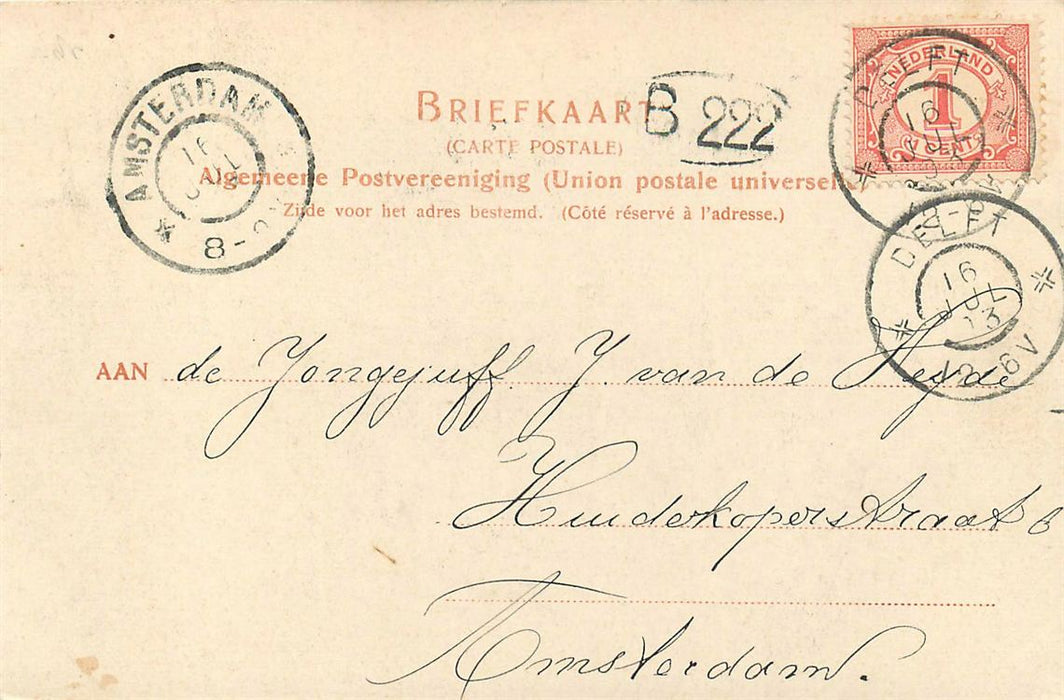 NEDERLAND
1
1 CENT
DELFT
16
JUL
DELFT
16
JUL
13
12-6V
AMSTERDAM
16
JUL
BRIEFKAART
B 222
(CARTE POSTALE)
Algemeene Postvereeniging (Union postale universelle)
Zijde voor het adres bestemd. (Côté réservé à l'adresse.)
AAN de Jongejuff. J. van de
Huidekoperstraat
Amsterdam.